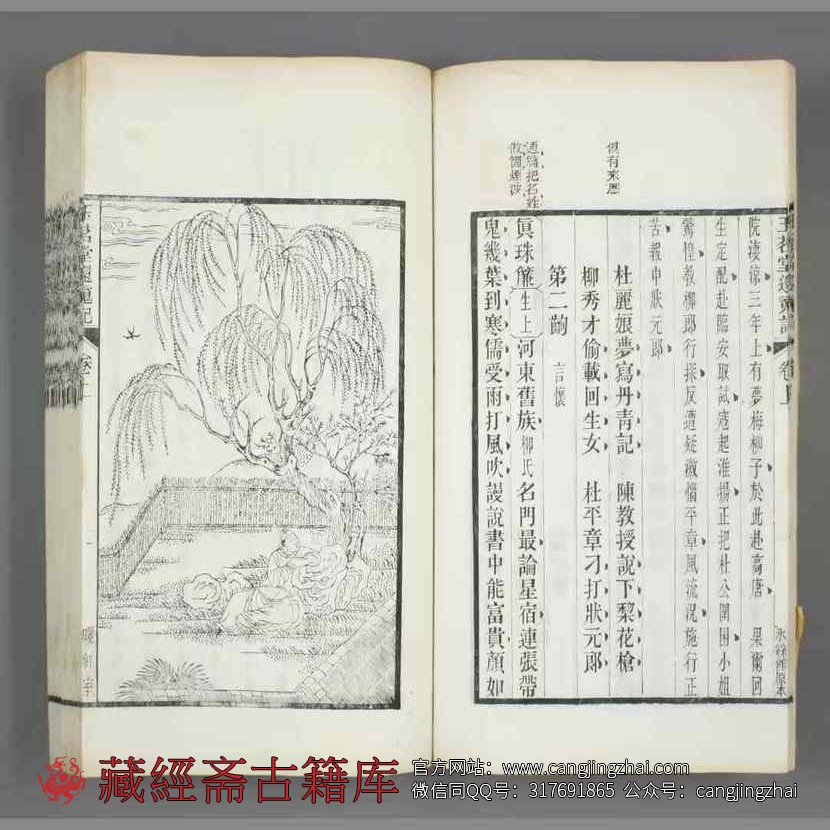 玉茗堂還魂記 卷上
院淒涼三年上有夢梅柳子於此赴高唐 果爾回
生定配赴臨安取試寇起淮揚正把杜公圍困小姐
驚惶教柳郎行探反遭疑激惱平章風流況施行正
苦報中狀元郎
俱有來歷
杜麗娘夢寫丹青記 陳教授說下棃花槍
柳秀才偷載回生女 杜平章刁打狀元郎
第二齣 言懷
通篇把名姓
眞珠簾 生上 河東舊族柳氏名門最論星宿連張帶
鬼幾葉到寒儒受雨打風吹謾說書中能富貴顏如
玉茗堂還魂記 卷上 一 暖紅室
藏經斋古籍库
官方网站：www.cangjingzhai.com
微信同QQ号：317691865 公众号：cangjingzhai